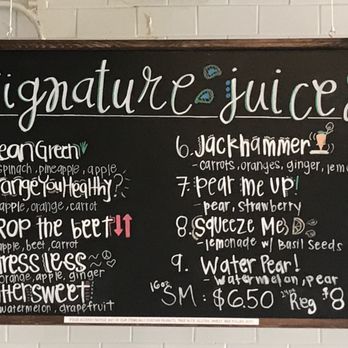 signature juices
ean Green
spinach, pineapple, apple
range You Healthy?
apple, orange, carrot
rop the beet
apple, beet, carrot
tress less
orange, apple, ginger
ittersweet
watermelon, grapefruit
6. Jackhammer
- carrots, oranges, ginger, lemo
7. pear me up!
- pear, strawberry
8. Squeeze Me :D
- lemonade w/ basil seeds
9. Water Pear!
- watermelon, pear
16oz SM: $6.50 Reg $8